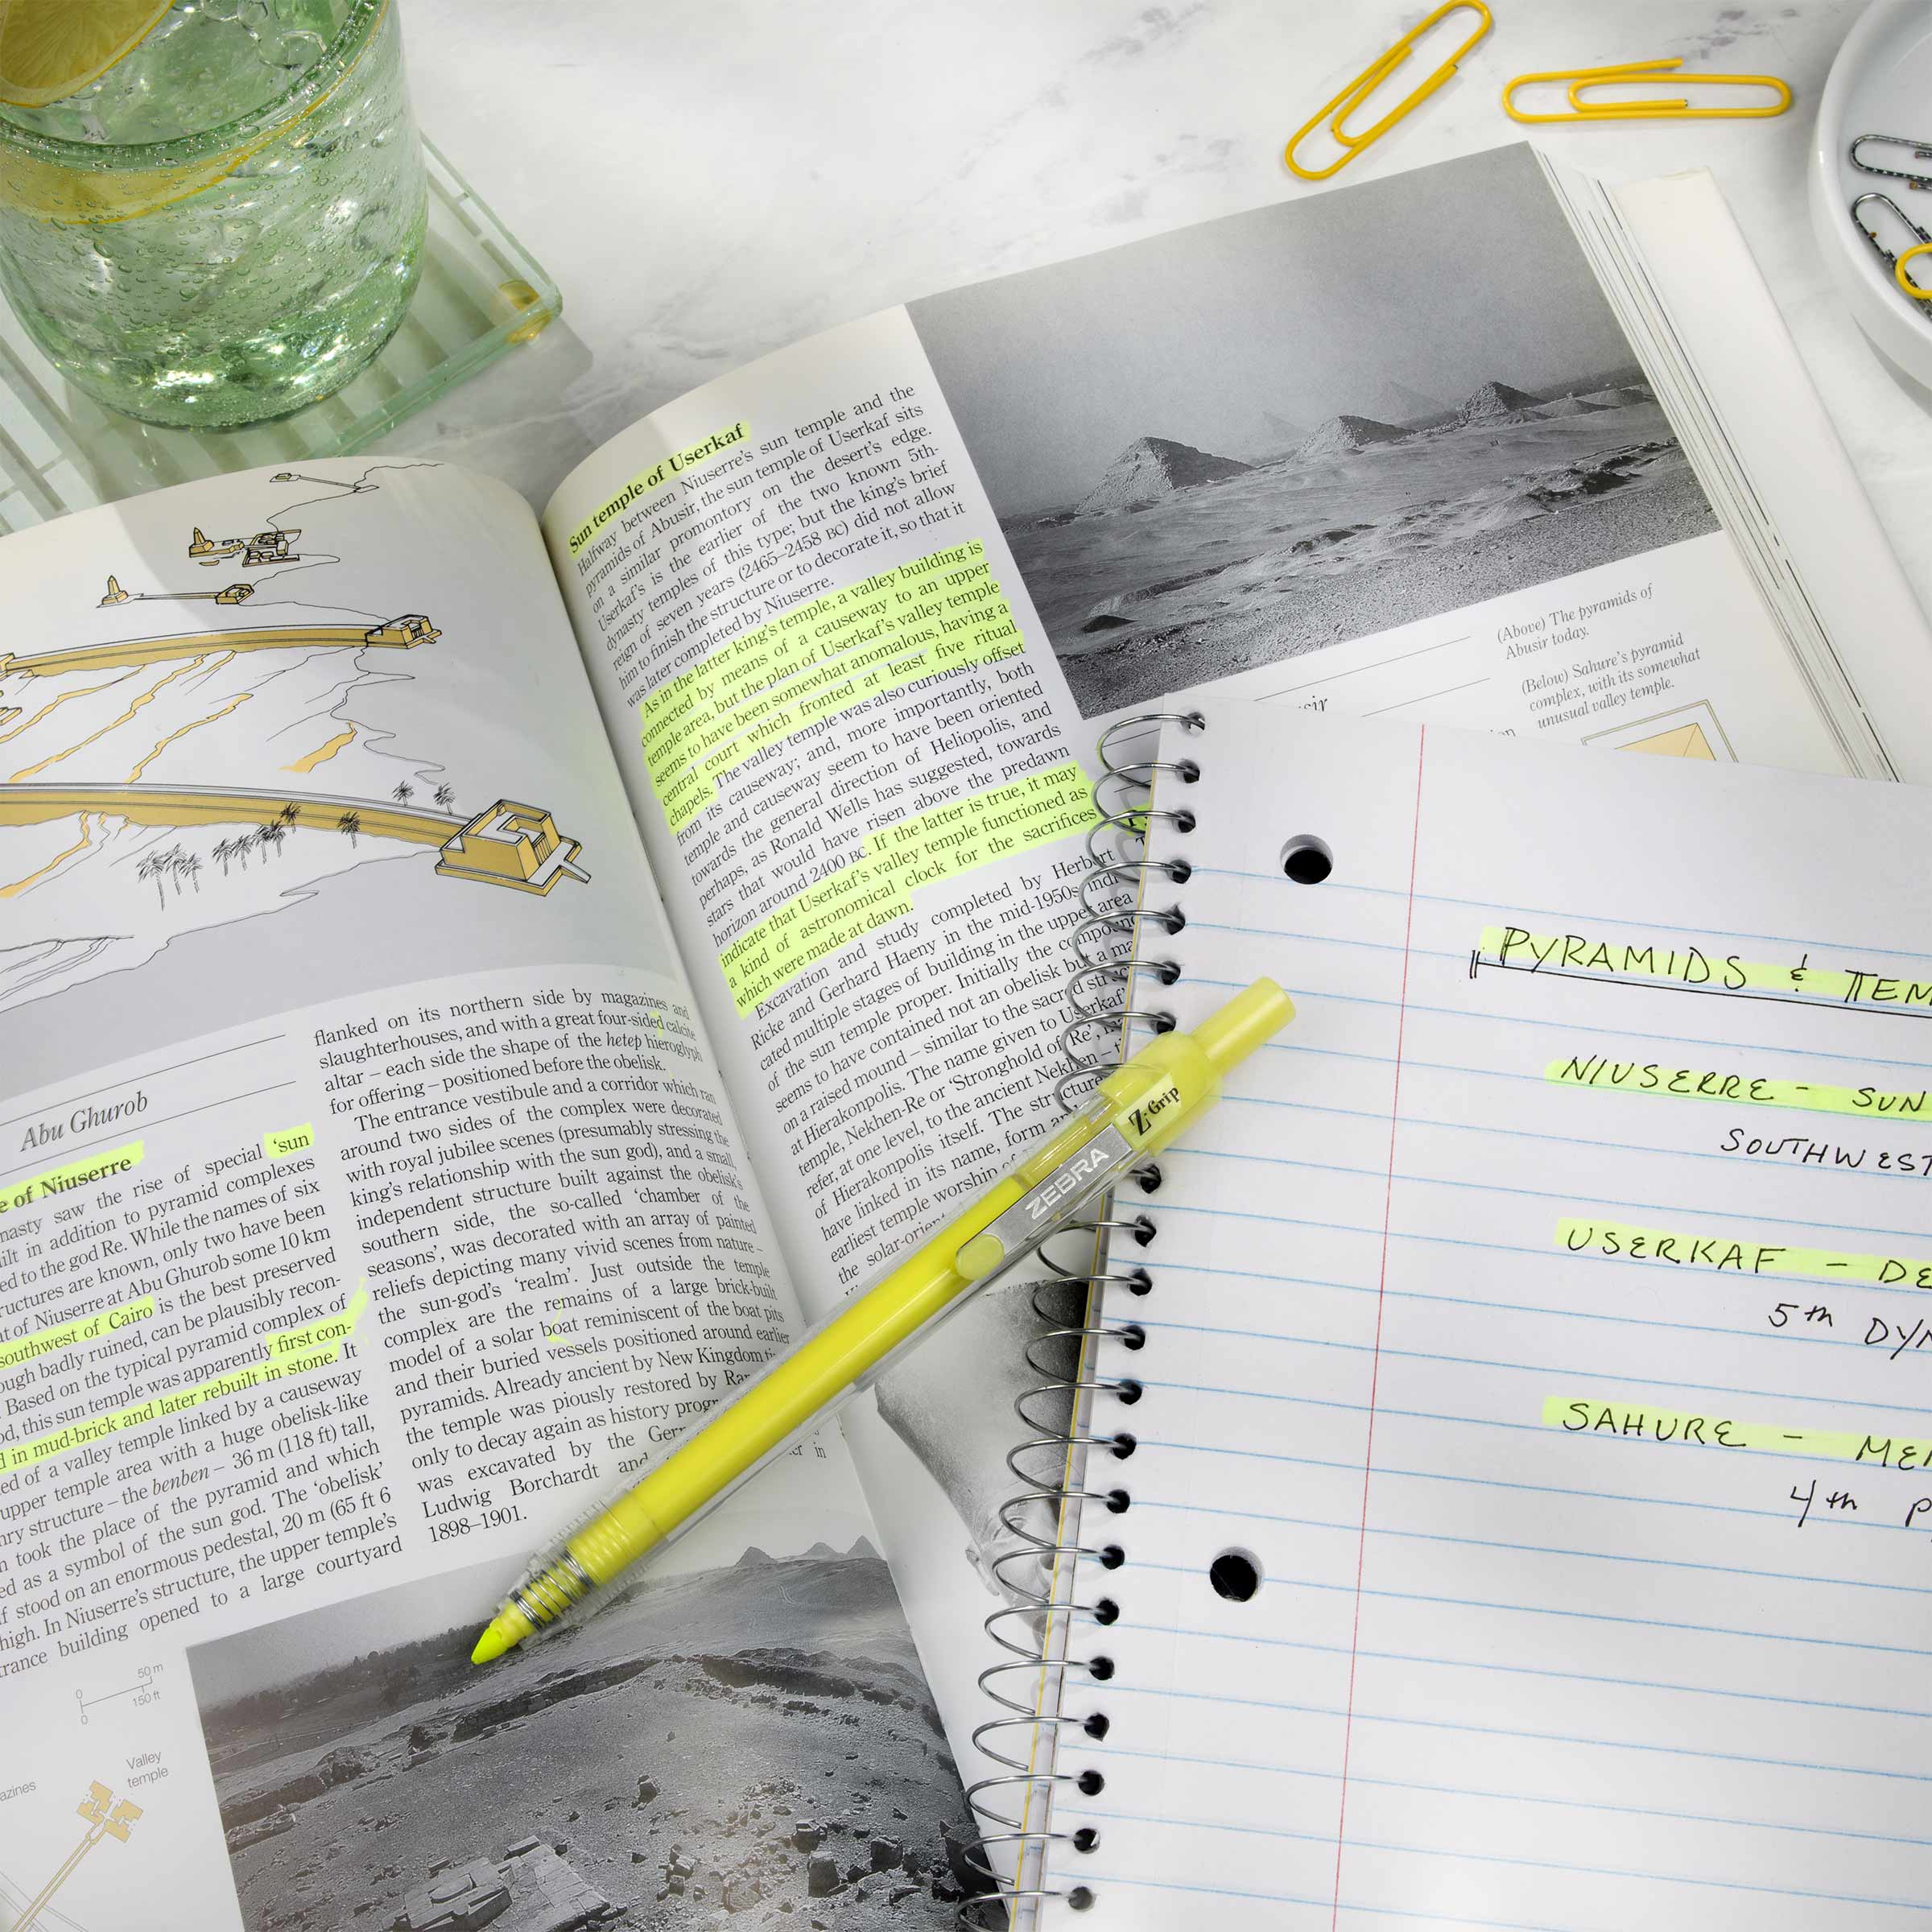 Abu Ghurob
e of Niuserre
nasty saw the rise of special ‘sun
ilt in addition to pyramid complexes
ed to the god Re. While the names of six
ructures are known, only two have been
at of Niuserre at Abu Ghurob some 10 km
southwest of Cairo is the best preserved
ough badly ruined, can be plausibly recon-
. Based on the typical pyramid complex of
od, this sun temple was apparently first con-
d in mud-brick and later rebuilt in stone. It
ed of a valley temple linked by a causeway
upper temple area with a huge obelisk-like
nry structure – the benben – 36 m (118 ft) tall,
n took the place of the pyramid and which
ed as a symbol of the sun god. The ‘obelisk’
f stood on an enormous pedestal, 20 m (65 ft 6
high. In Niuserre's structure, the upper temple's
trance building opened to a large courtyard
flanked on its northern side by magazines and
slaughterhouses, and with a great four-sided calcite
altar – each side the shape of the hetep hieroglyph
for offering – positioned before the obelisk.
The entrance vestibule and a corridor which ran
around two sides of the complex were decorated
with royal jubilee scenes (presumably stressing the
king's relationship with the sun god), and a small,
independent structure built against the obelisk's
southern side, the so-called ‘chamber of the
seasons’, was decorated with an array of painted
reliefs depicting many vivid scenes from nature –
the sun-god's ‘realm’. Just outside the temple
complex are the remains of a large brick-built
model of a solar boat reminiscent of the boat pits
and their buried vessels positioned around earlier
pyramids. Already ancient by New Kingdom
the temple was piously restored by
only to decay again as history
was excavated by the
Ludwig Borchardt and
in
1898–1901.
0
50 m
0
150 ft
azines
Valley
temple
Sun temple of Userkaf
Halfway between Niuserre's sun temple and the
pyramids of Abusir, the sun temple of Userkaf sits
on a similar promontory on the desert's edge.
Userkaf's is the earlier of the two known 5th-
dynasty temples of this type; but the king's brief
reign of seven years (2465–2458 BC) did not allow
him to finish the structure or to decorate it, so that it
was later completed by Niuserre.
As in the latter king's temple, a valley building is
connected by means of a causeway to an upper
temple area, but the plan of Userkaf's valley temple
seems to have been somewhat anomalous, having a
central court which fronted at least five ritual
chapels. The valley temple was also curiously offset
from its causeway; and, more importantly, both
temple and causeway seem to have been oriented
towards the general direction of Heliopolis, and
perhaps, as Ronald Wells has suggested, towards
stars that would have risen above the predawn
horizon around 2400 BC. If the latter is true, it may
indicate that Userkaf's valley temple functioned as
a kind of astronomical clock for the sacrifices
which were made at dawn.
Excavation and study completed by Herbert
Ricke and Gerhard Haeny in the mid-1950s indi-
cated multiple stages of building in the upper area
of the sun temple proper. Initially the compound
seems to have contained not an obelisk but a
on a raised mound – similar to the sacred
at Hierakonpolis. The name given to Userkaf
temple, Nekhen-Re or ‘Stronghold of Re’,
refer, at one level, to the ancient Nekhen –
of Hierakonpolis itself. The structure
have linked in its name, form
earliest temple worship of
the solar-orient
(Above) The pyramids of
Abusir today.
(Below) Sahure's pyramid
complex, with its somewhat
unusual valley temple.
sir
Z-Grip
ZEBRA
PYRAMIDS & TEM
NIUSERRE - SUN
SOUTHWEST
USERKAF - DE
5th DYN
SAHURE - MEN
4th P